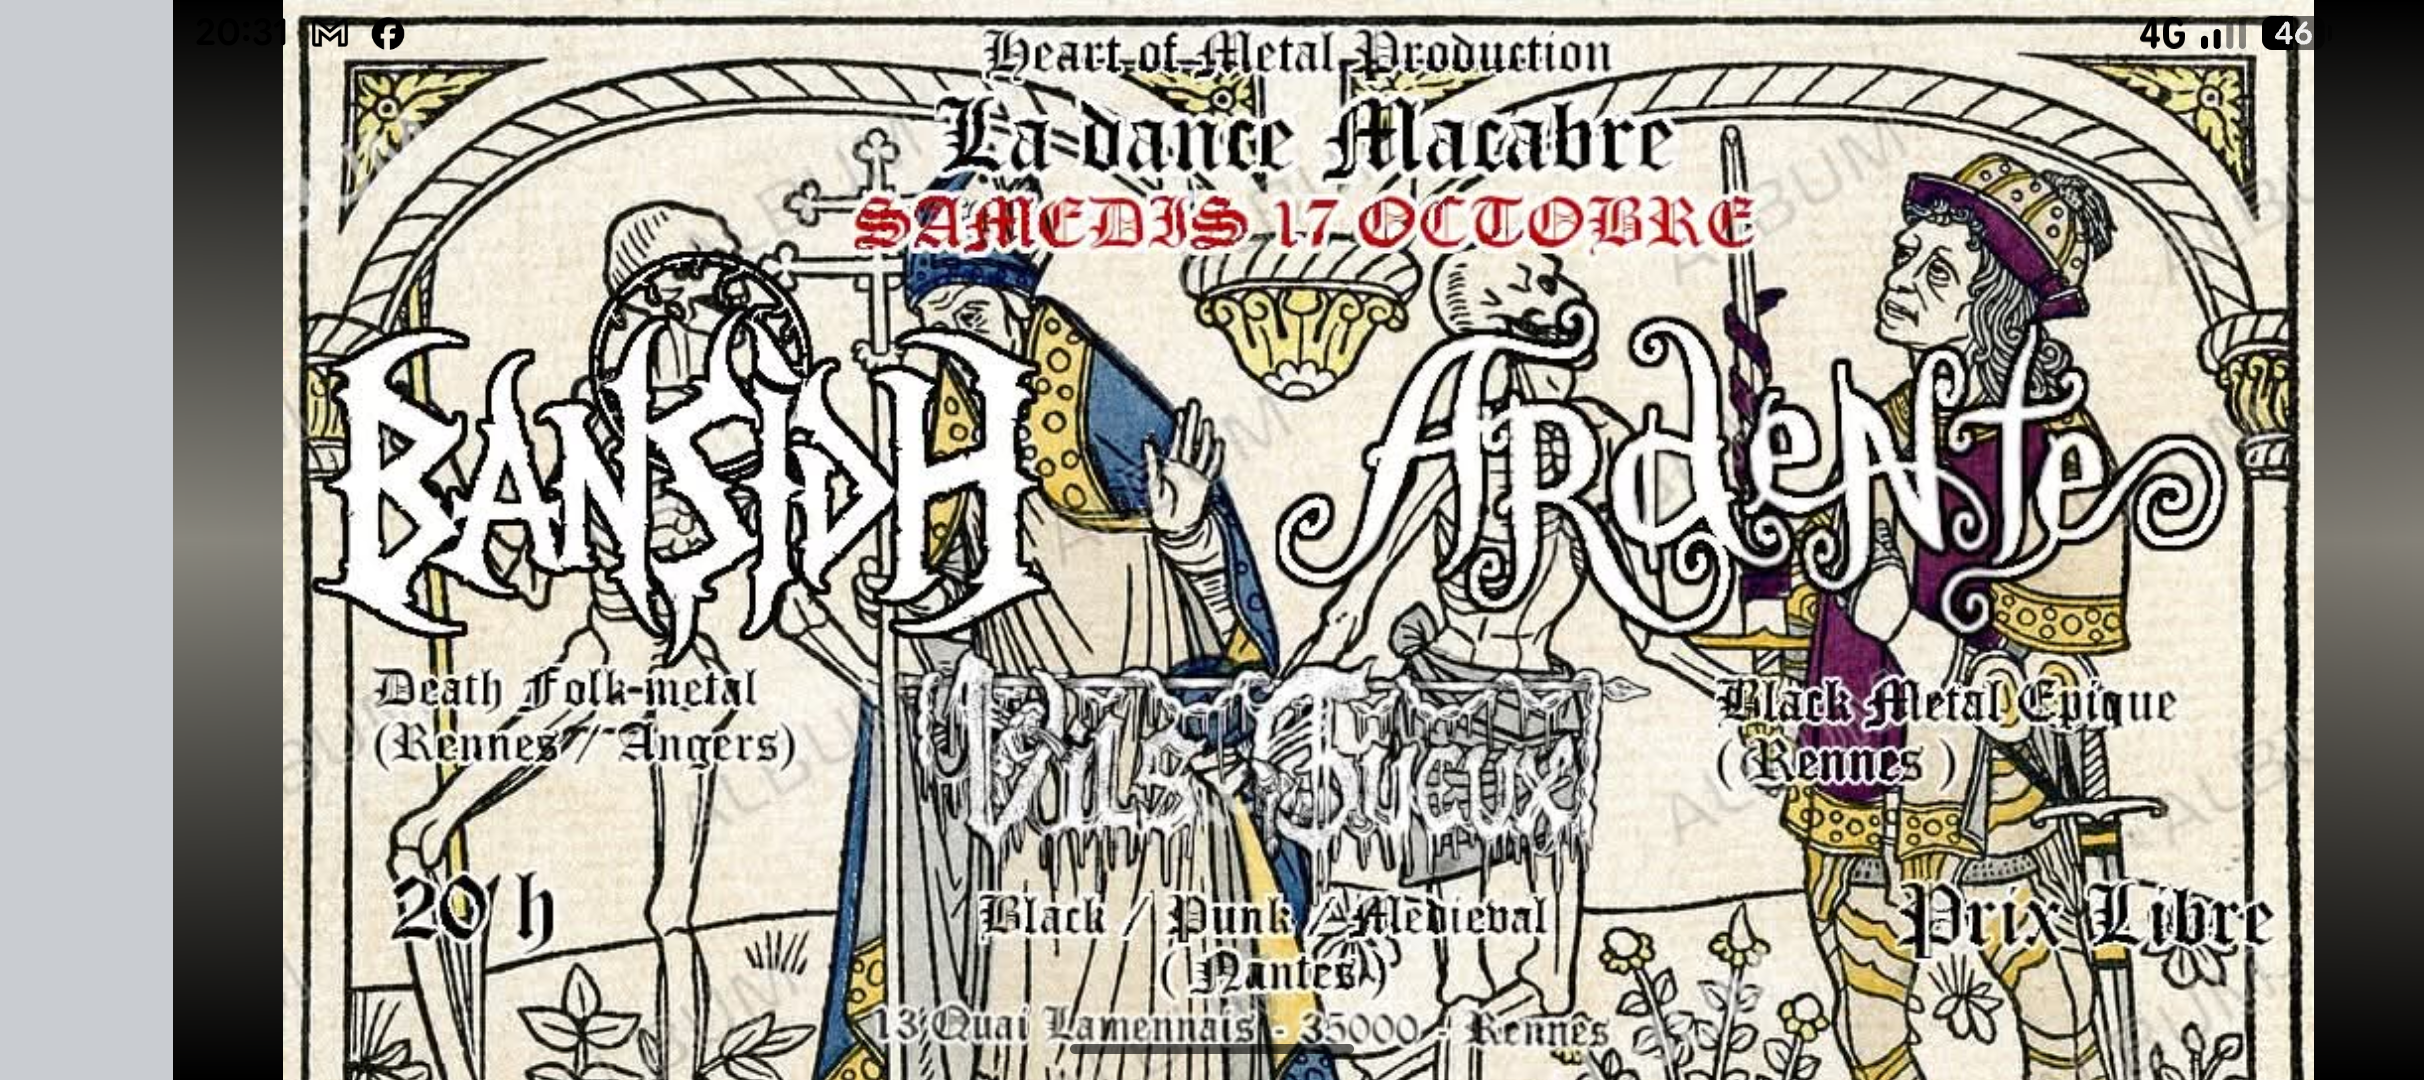 20:31
4G
46
Heart of Metal Production
La dance Macabre
SAMEDIS 17 OCTOBRE
BANSIDH
ARdeNte
Death Folk-metal
(Rennes / Angers)
Black Metal Epique
( Rennes )
Vils Gueux
20 h
Prix Libre
Black / Punk / Médieval
( Nantes )
13 Quai Lamennais - 35000 - Rennes
ALBUM